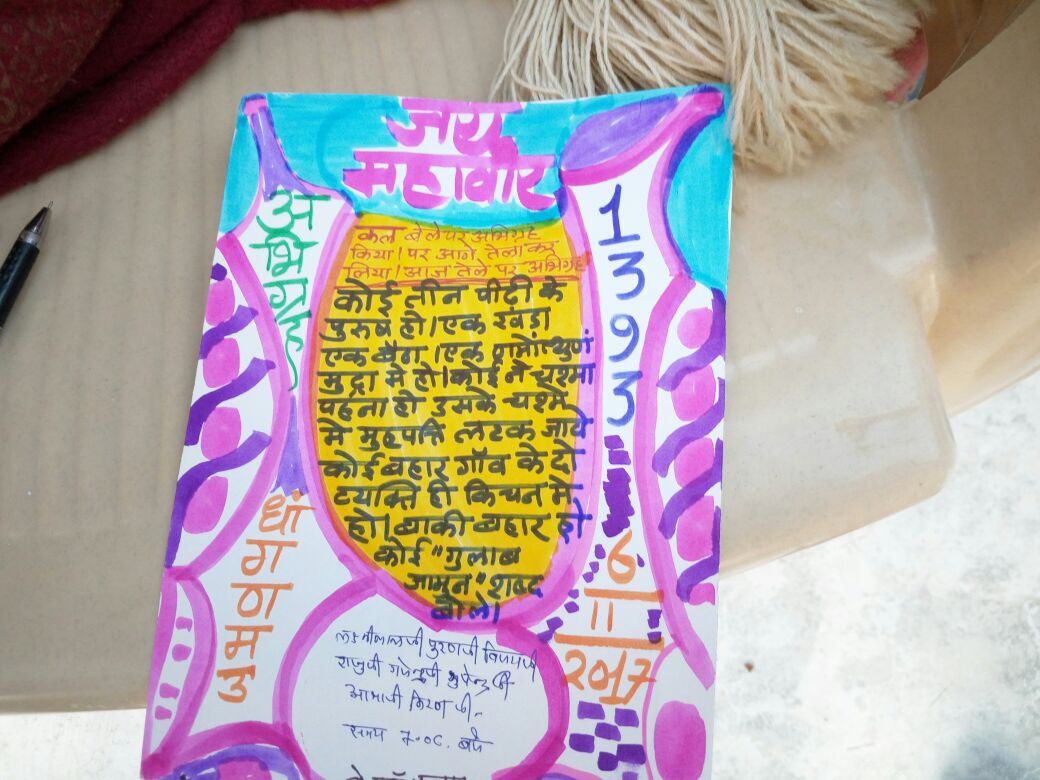 जय
महावीर
अभिग्रह
1393
कल बेले पर अभिग्रह
किया। पर आगे तेला कर
लिया। आज तेले पर अभिग्रह
कोई तीन पीढ़ी के
पुरुष हो। एक खड़ा
एक बैठा। एक णमोत्थुणं
मुद्रा मे हो। कोई ने चश्मा
पहना हो उसके चश्मे
मे मुहपत्ति लटक जाये
कोई बहार गाँव के दो
व्यक्ति ही किचन मे
हो। बाकी बहार हो
कोई "गुलाब
जामुन" शब्द
बोले।
धां
ग
ण
म
उ
6
11
2017
पुरणजी विजयजी
राजुजी गजेन्द्रजी भुपेन्द्र जी
आभाजी किरण जी
समय ७.०८. बजे